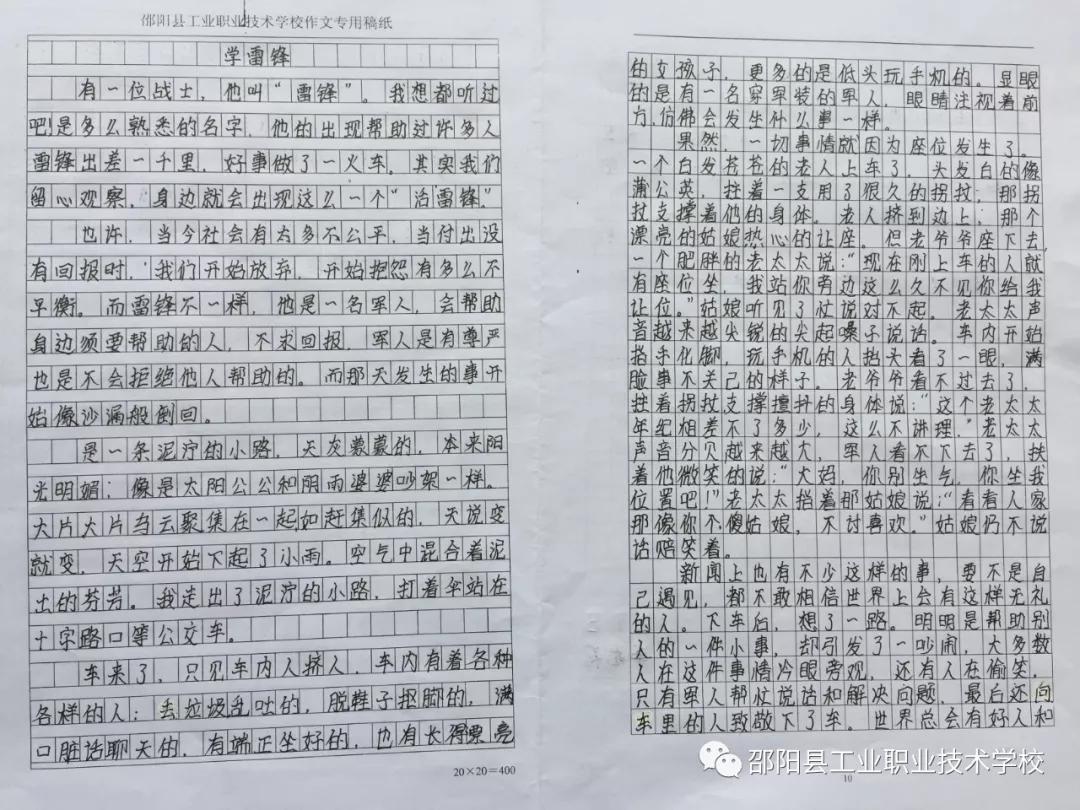 邵阳县工业职业技术学校作文专用稿纸
学雷锋
有一位战士，他叫“雷锋”。我想都听过
吧！是多么熟悉的名字，他的出现帮助过许多人
雷锋出差一千里，好事做了一火车。其实我们
留心观察，身边就会出现这么一个“活雷锋”.
也许，当今社会有太多不公平，当付出没
有回报时，我们开始放弃，开始抱怨有多么不
平衡。而雷锋不一样，他是一名军人，会帮助
身边须要帮助的人，不求回报，军人是有尊严
也是不会拒绝他人帮助的。而那天发生的事开
始像沙漏般倒回。
是一条泥泞的小路，天灰蒙蒙的，本来阳
光明媚；像是太阳公公和阴雨婆婆吵架一样。
大片大片乌云聚集在一起如赶集似的，天说变
就变，天空开始下起了小雨。空气中混合着泥
土的芬芳。我走出了泥泞的小路，打着伞站在
十字路口等公交车。
车来了，只见车内人挤人，车内有着各种
各样的人；丢垃圾乱吐的，脱鞋子抠脚的，满
口脏话聊天的，有端正坐好的，也有长得漂亮
20×20=400
的女孩子，更多的是低头玩手机的。显眼
的是有一名穿军装的军人，眼睛注视着前
方，仿佛会发生什么事一样。
果然，一切事情就因为座位发生了。
一个白发苍苍的老人上车了，头发白的像
蒲公英，拄着一支用了很久的拐杖；那拐
杖支撑着他的身体。老人挤到边上，那个
漂亮的姑娘热心的让座。但老爷爷座下去，
一个肥胖的老太太说：“现在刚上车的人就
有座位坐，我站你旁边这么久不见你给我
让位。”姑娘听见了忙说对不起。老太太声
音越来越尖锐的尖起嗓子说话。车内开始
指手化脚，玩手机的人抬头看了一眼，满
脸事不关己的样子。老爷爷看不过去了，
拄着拐杖，支撑擅抖的身体说：“这个老太太
年纪相差不了多少，这么不讲理，”老太太
声音分贝越来越大，军人看不下去了，扶
着他微笑的说：“大妈，你别生气，你坐我
位置吧！”老太太指着那姑娘说：“看看人家
那像你个傻姑娘，不讨喜欢。”姑娘仍不说
话赔笑着。
新闻上也有不少这样的事，要不是自
己遇见，都不敢相信世界上会有这样无礼
的人。下车后，想了一路。明明是帮助别
人的一件小事，却引发了一吵闹，大多数
人在这件事情冷眼旁观，还有人在偷笑，
只有军人帮忙说话和解决问题，最后还向
车里的人致敬下了车。世界总会有好人和
10
邵阳县工业职业技术学校